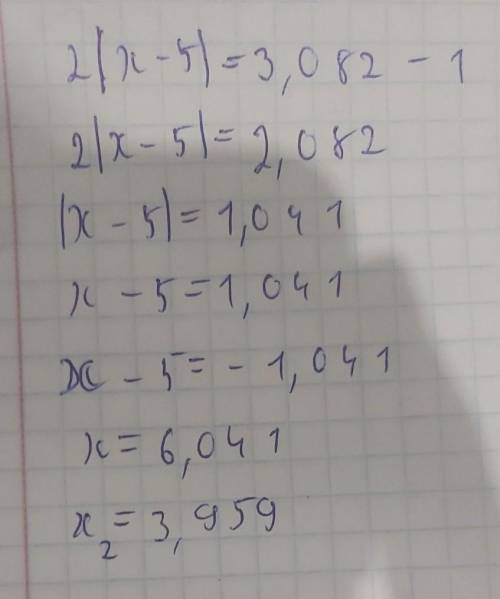 2|x - 5| = 3,082 - 1
2|x - 5| = 2,082
|x - 5| = 1,041
x - 5 = 1,041
x - 5 = - 1,041
x = 6,041
x₂ = 3,959